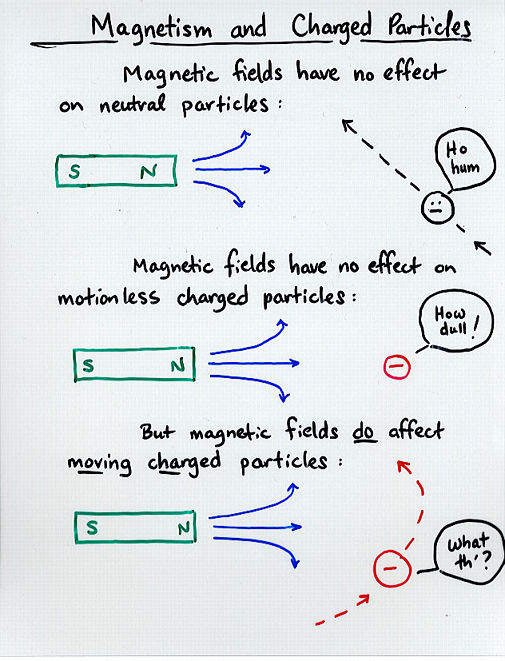 Magnetism and Charged Particles
Magnetic fields have no effect
on neutral particles:
Ho
hum
S N
Magnetic fields have no effect on
motionless charged particles:
How
dull!
S N
But magnetic fields do affect
moving charged particles:
S N
What
th'?